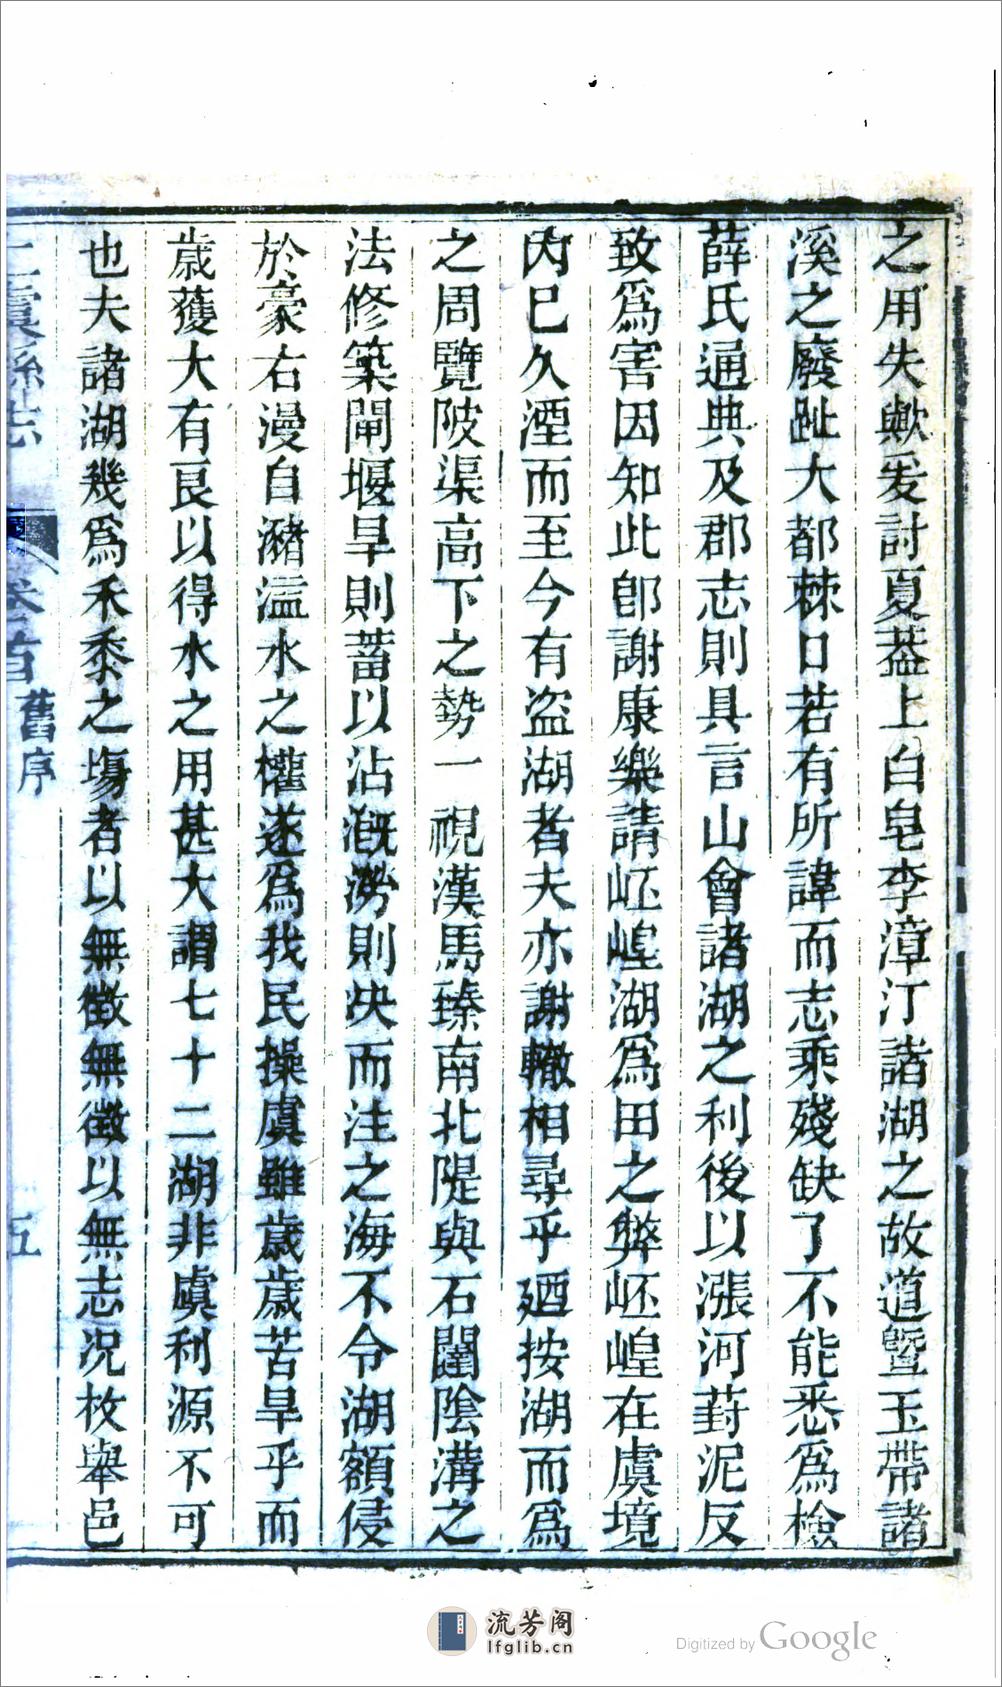 之用失歟爰討夏葢上白皂李漳汀諸湖之故道暨玉帶諸
溪之廢趾大都棘口若有所諱而志乘殘缺了不能悉爲檢
薛氏通典及郡志則具言山會諸湖之利後以漲河葑泥反
致爲害因知此卽謝康樂請岯崲湖爲田之弊岯崲在虞境
內已久湮而至今有盜湖者夫亦謝轍相尋乎廼按湖而爲
之周覽陂渠高下之勢一視漢馬臻南北隄與石闥陰溝之
法修築閘堰旱則蓄以沾漑澇則决而注之海不令湖額侵
於豪右漫自瀦溢水之權遂爲我民操虞雖歲歲苦旱乎而
歲獲大有良以得水之用甚大謂七十二湖非虞利源不可
也夫諸湖幾爲禾黍之塲者以無徵無徵以無志况枚舉邑
上虞縣志
卷首
舊序
五
流芳阁
lfglib.cn
Digitized by Google